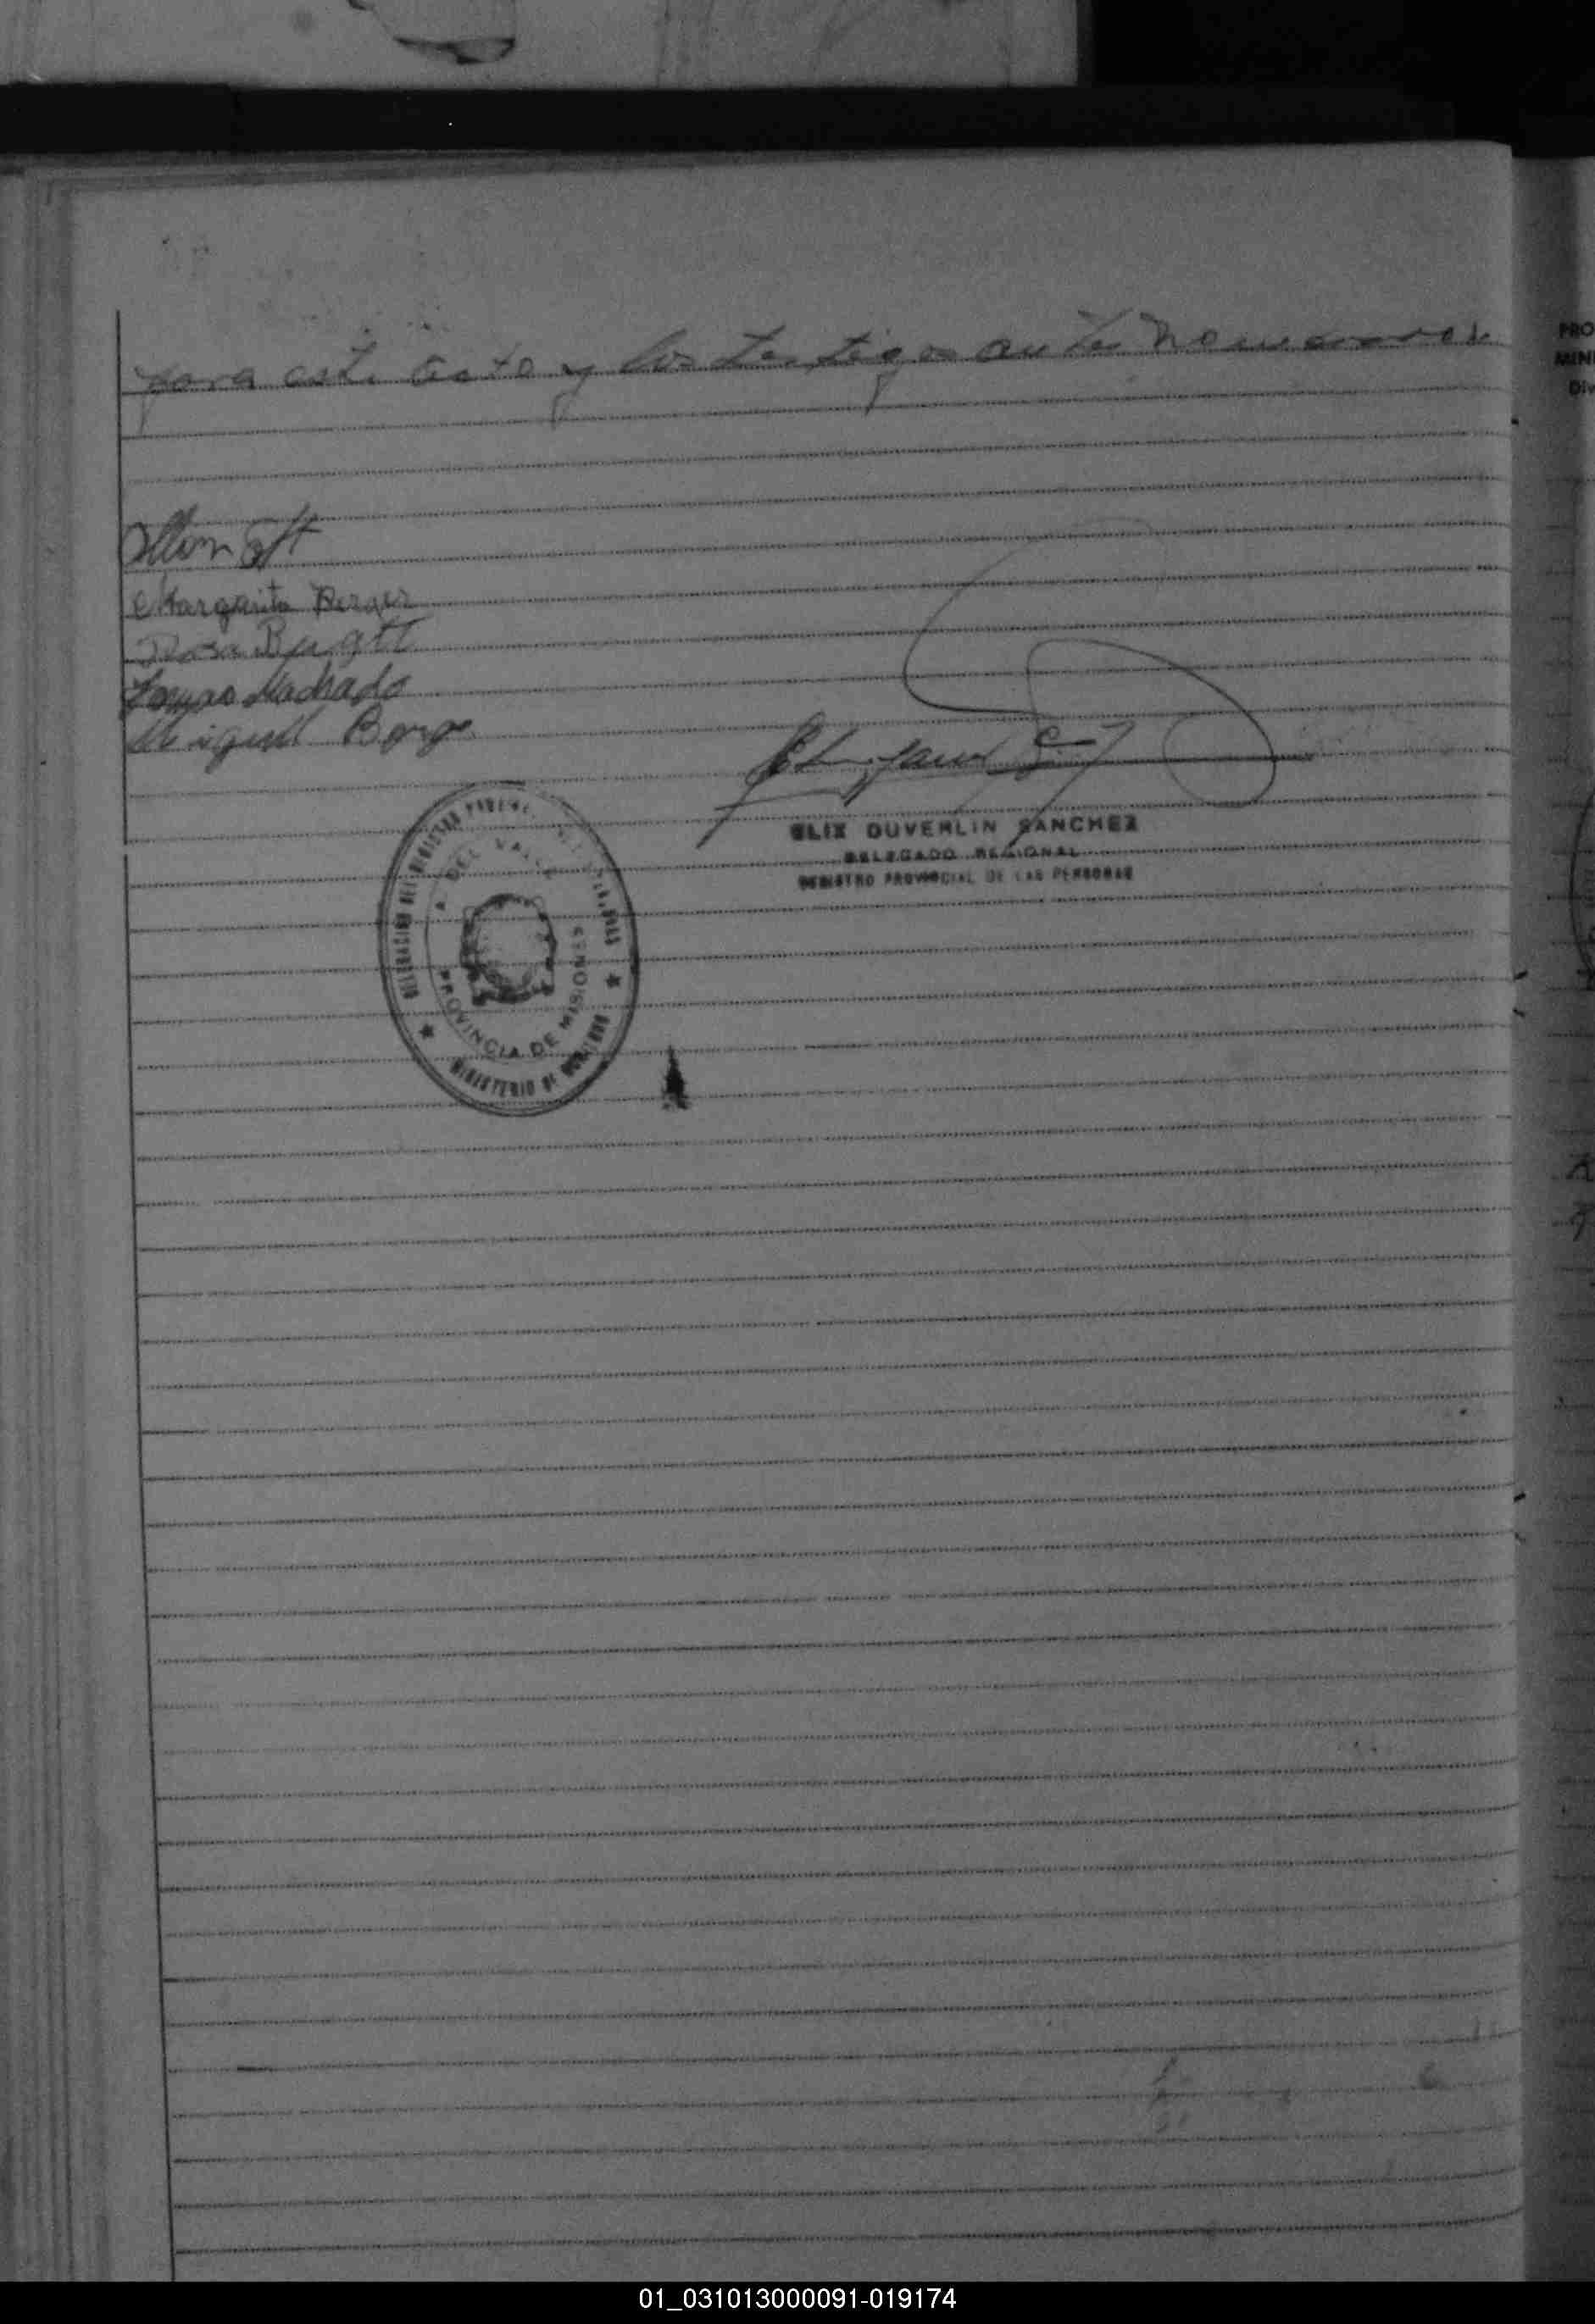 para este acto y los testigos antes nombrados
Margarita Berger
Rosa
Tomas Machado
Miguel Borg
ELIX DUVERLIN SANCHEZ
DELEGADO REGIONAL
REGISTRO PROVINCIAL DE LAS PERSONAS
A. DEL VALLE
PROVINCIA DE MISIONES
MINISTERIO DE GOBIERNO
PRO
MINI
Div
01_031013000091-019174